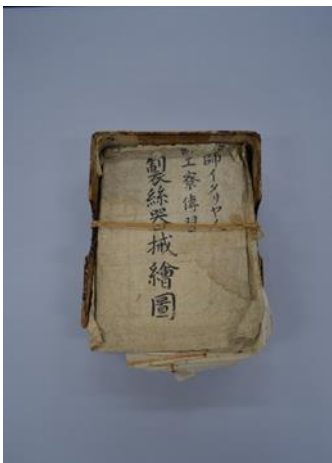 師イタリヤ
工寮傳習
製絲器械繪圖